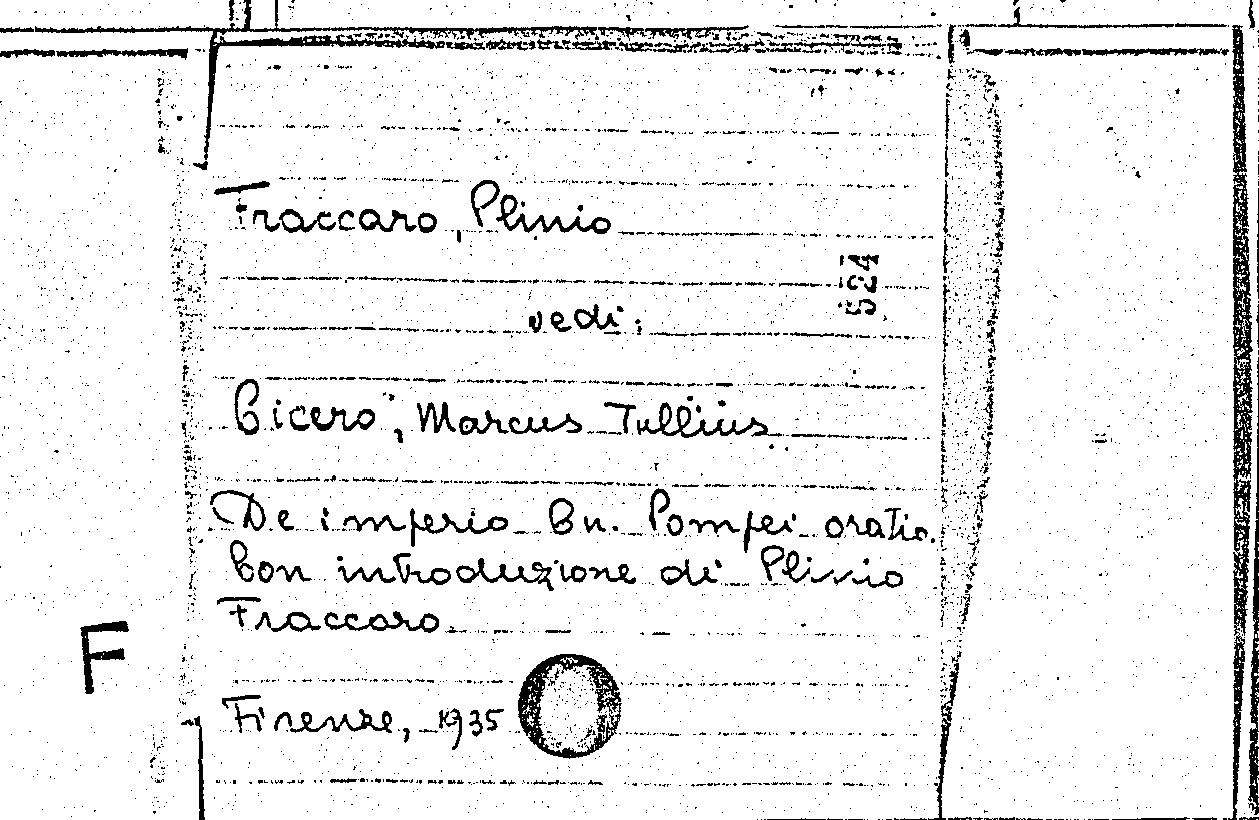 Fraccaro, Plinio
524
vedi:
Cicero, Marcus Tullius
De imperio Cn. Pompei oratio.
Con introduzione di Plinio
Fraccaro.
F
Firenze, 1935